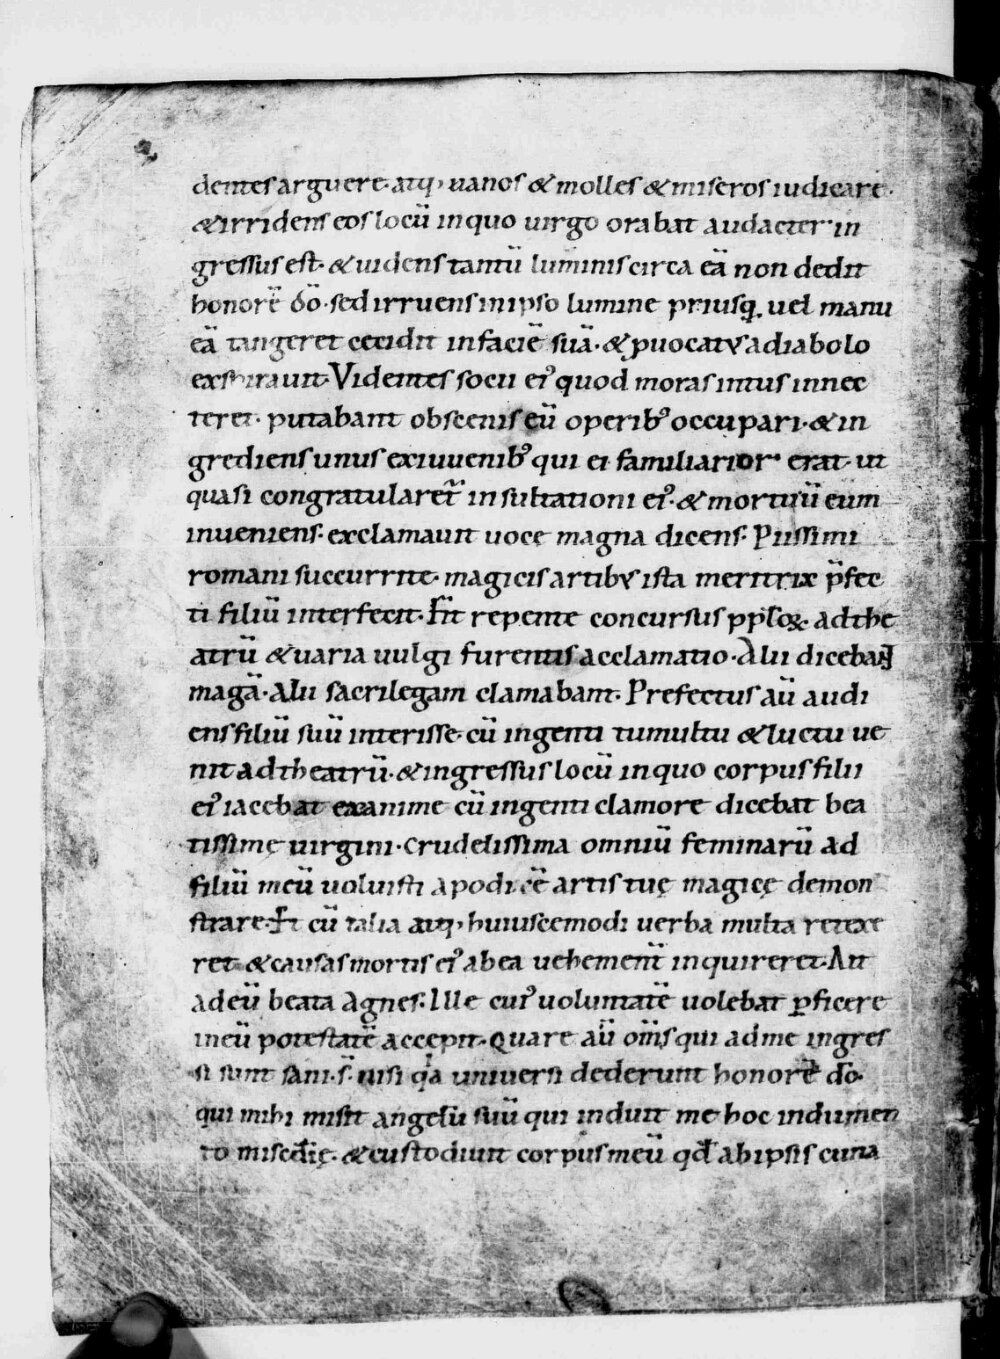 dentes arguere· atq; uanos & molles & miseros iudicare·
& irridens eos locū inquo uirgo orabat audacter in
gressus est· & uidens tantū luminis circa eā non dedit
honorē dō· sed irruens inipso lumine priusq̨ uel manu
eā tangeret cecidit infaciē suā· & p̄uocatus adiabolo
exspirauit· Videntes socii ei᾽ quod moras intus innec
teret· putabant obscenis eū operib᾽ occupari· & in
grediens unus exiuuenib᾽ qui ei familiarior erat· ut
quasi congratularet̄ insultationi ei᾽· & mortuū eum
inueniens· exclamauit uoce magna dicens· Piissimi
romani succurrite· magicis artibus ista meretrix p̄fec
ti filiū interfecit· Fit repente concursus pplo℞ adthe
atrū & uaria uulgi furentis acclamatio· Alii dicebant
magā· Alii sacrilegam clamabant· Prefectus aū audi
ens filiū suū interisse· cū ingenti tumultu & luctu ue
nit adtheatrū· & ingressus locū inquo corpus filii
ei᾽ iacebat exanime cū ingenti clamore dicebat bea
tissimę uirgini· Crudelissima omniū feminarū ad
filiū meū uoluisti apodixē artis tuę magicę demon
strare· Et cū talia atq; huiuscemodi uerba multa retexe
ret· & causas mortis ei᾽ abea uehement̄ inquireret· Ait
adeū beata Agnes· Ille cui᾽ uoluntatē uolebat ꝑficere
ineū potestatē accępit· Quare aū om̄s qui adme ingres
si sunt sani· s̄· nisi q̄a uniuersi dederunt honorē dō·
qui mihi misit angelū suū qui induit me hoc indumen
to mis̄cdię· & custodiuit corpus meū qđ abipsis cuna